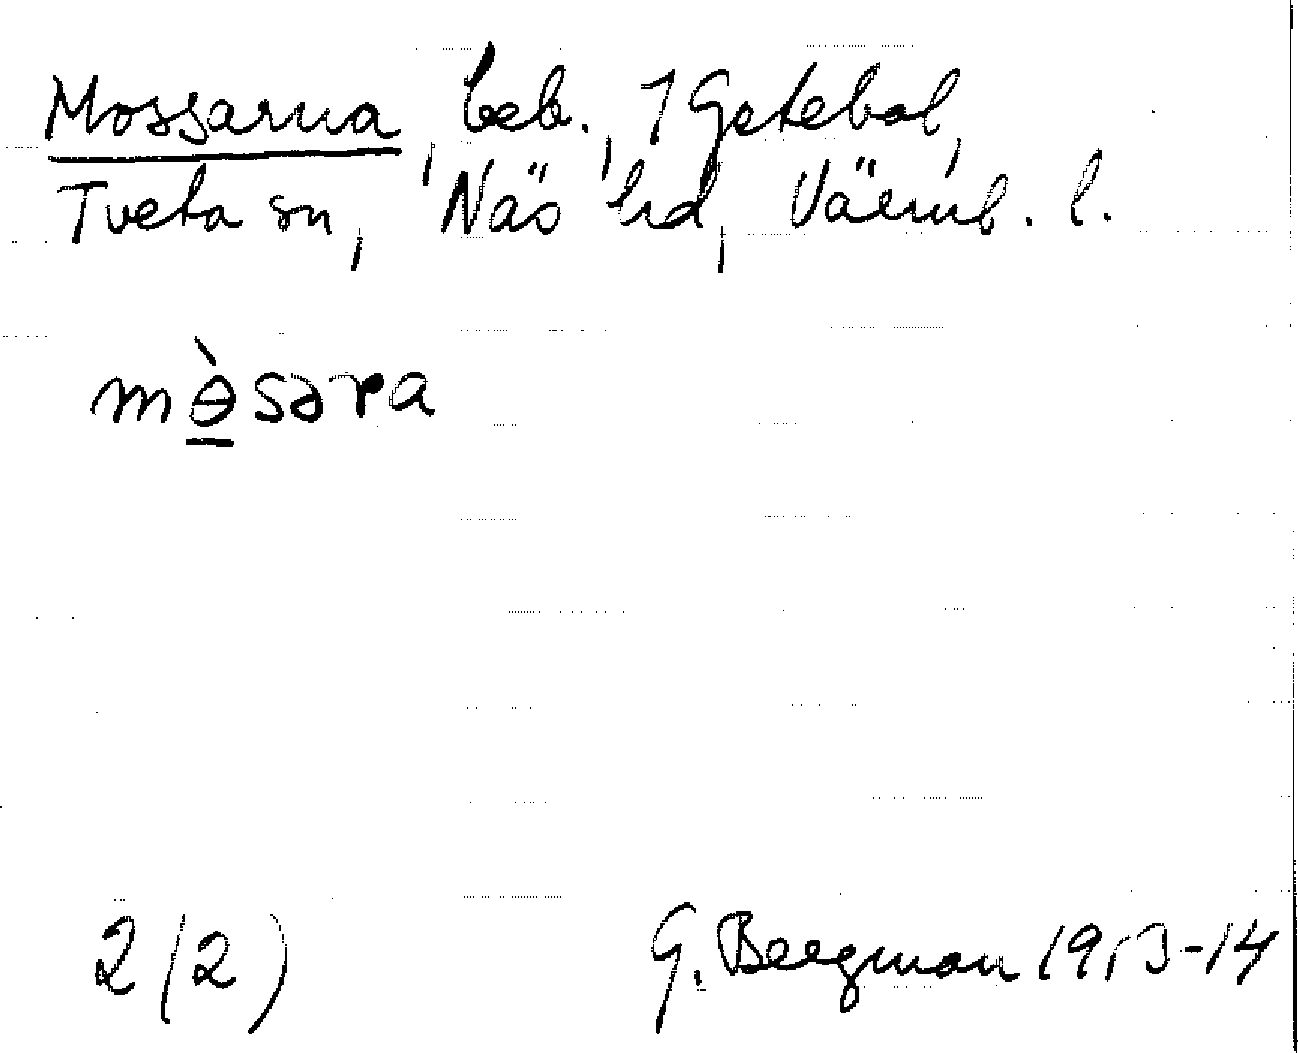 Mossarna, beb., 1 Getebol,
Tveta sn, Näs hd, Värml. l.
mɵ̀səra
2(2)
G. Bergman 1913-14